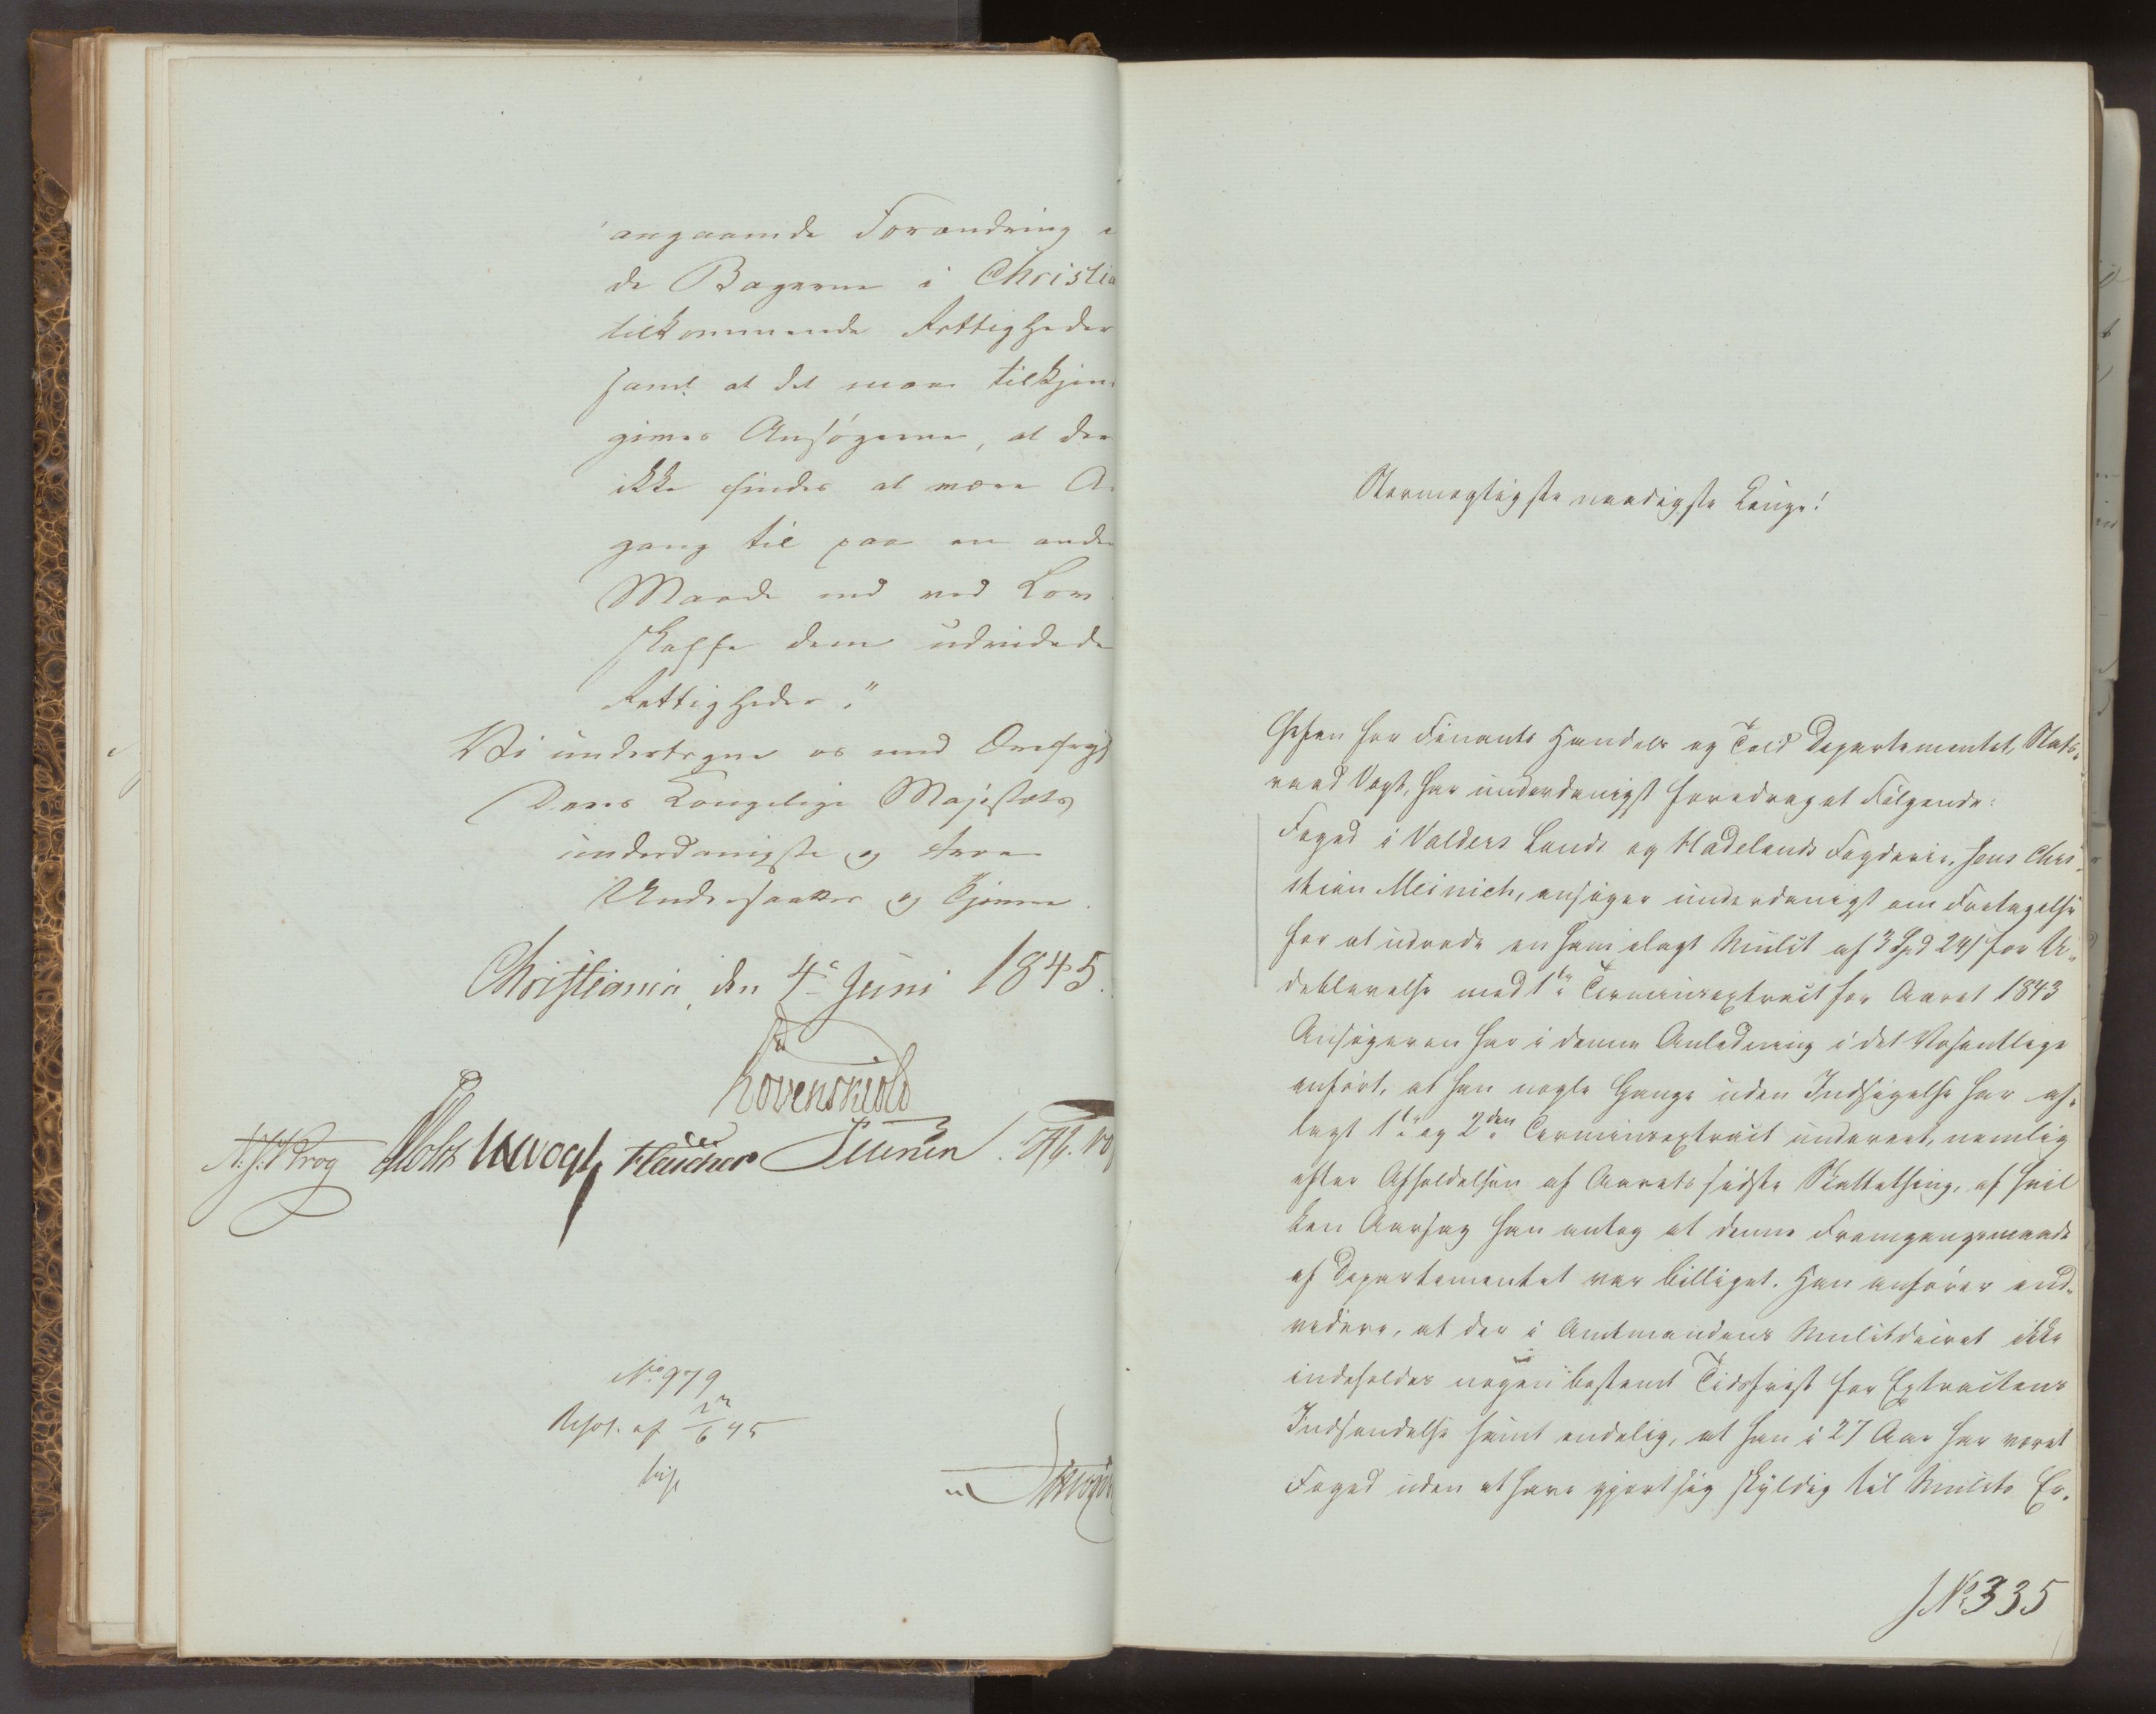 angaaende Forandring i
de Bagerne i Christia
tilkommende Rettigheder
samt at det maa tilkjen-
gives Ansøgerne, at der
ikke findes at være A
gang til paa en anden
Maade end ved Lov
skaffe dem udvidede
Rettigheder."
Vi undertegne os med Ærefrygt
Deres Kongelige Majestæts
underdanigste og troe
Undersaatter og Tjenere.
Christiania, den 4de Juni 1845.
Løvenskiold
Krog Holst Vogt
No 979
Resol. af 6 45
Stormægtigste naadigste Konge!
Chefen for Finants Handels og Told Departementet, Stats-
raad Vogt, har underdanigst foredraget Følgende:
Foged i Valders Lands og Hadelands Fogderie, Jens Chri-
stian Meinich, ansøger underdanigst om Fritagelse
for at udrede en ham ilagt Mulct af 3 Spd 24 s for U-
deblivelse med 1ste Terminsextract for Aaret 1843
Ansøgeren har i denne Anledning i det Væsentlige
anført, at han nogle Gange uden Indsigelse har af-
lagt 1ste og 2den Terminsextract undereet, nemlig
efter Afholdelsen af Aarets sidste Skattething, af hvil
ken Aarsag han antog at denne Fremgangsmaade
af Departementet var billiget. Han anfører end-
videre, at der i Amtmandens Mulctdecret ikke
indeholdes nogen bestemt Tidsfrist for Extractens
Indsendelse samt endelig, at han i 27 Aar har været
Foged uden at have gjort sig skyldig til Mulcts Er-
J No 335